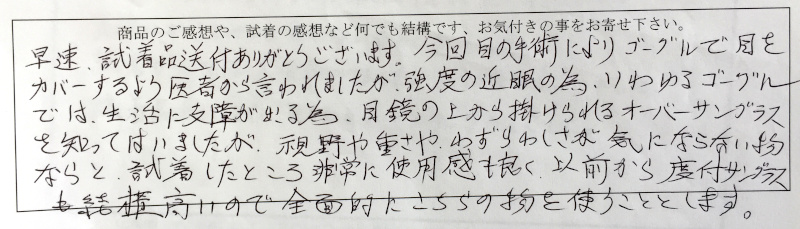 商品のご感想や、試着の感想など何でも結構です、お気付きの事をお寄せ下さい。
早速、試着品送付ありがとうございます。今回目の手術によりゴーグルで目を
カバーするよう医者から言われましたが、強度の近眼の為、いわゆるゴーグル
では、生活に支障が出る為、目鏡の上から掛けられるオーバーサングラス
を知ってはいましたが、視野や重さや、わずらわしさが気にならない物
ならと、試着したところ非常に使用感も良く、以前から度付サングラス
も結構高いので全面的にこちらの物を使うこととします。